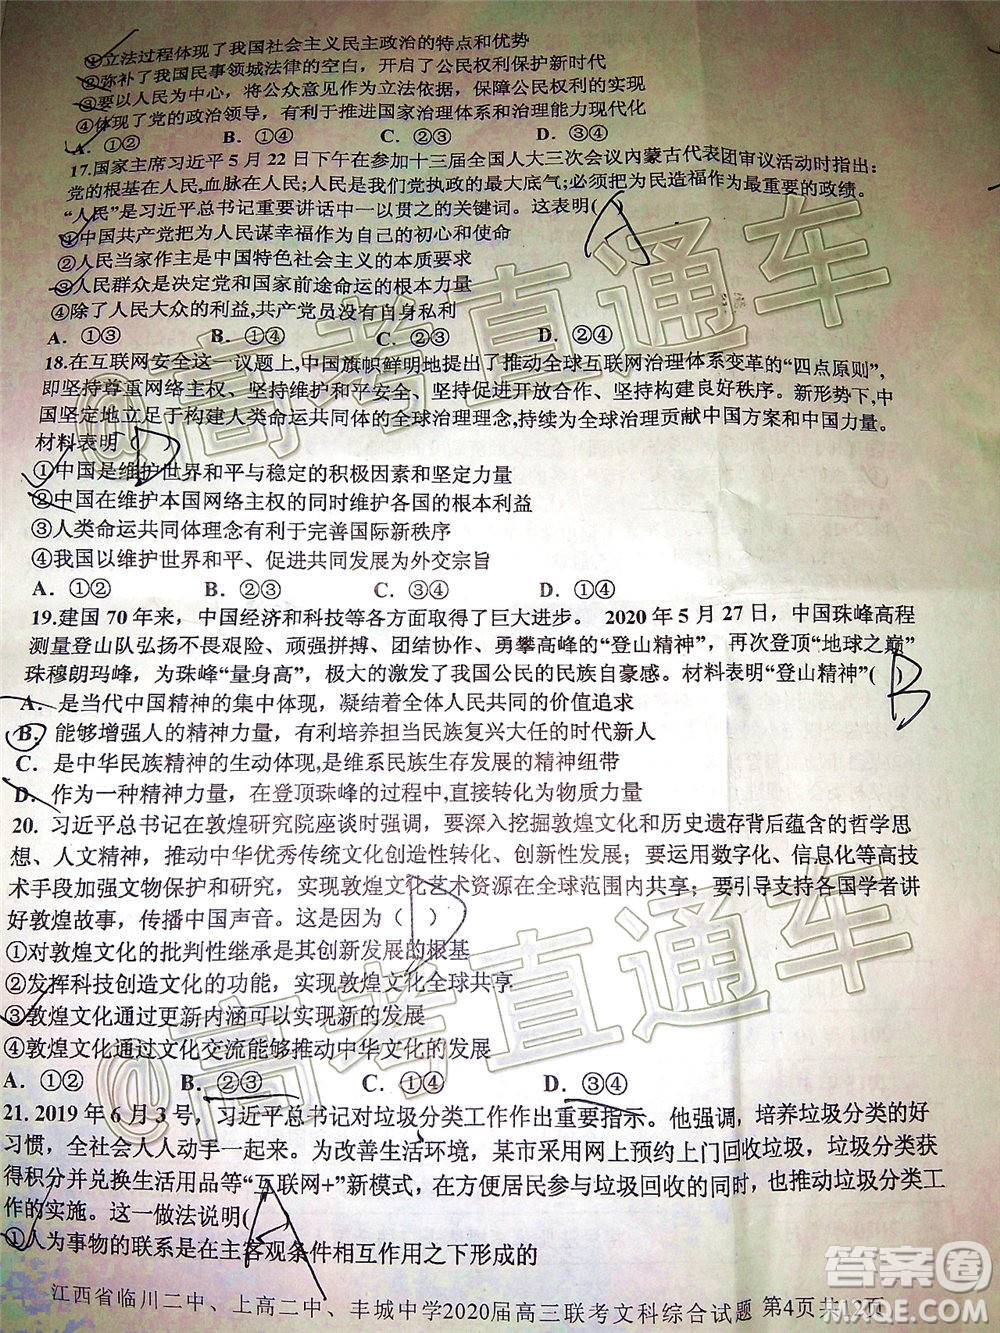 ①立法过程体现了我国社会主义民主政治的特点和优势
②弥补了我国民事领城法律的空白，开启了公民权利保护新时代
③要以人民为中心，将公众意见作为立法依据，保障公民权利的实现
④体现了党的政治领导，有利于推进国家治理体系和治理能力现代化
A．①② B．①④ C．②③ D．③④
17.国家主席习近平5月22日下午在参加十三届全国人大三次会议内蒙古代表团审议活动时指出：
党的根基在人民,血脉在人民;人民是我们党执政的最大底气;必须把为民造福作为最重要的政绩。
“人民”是习近平总书记重要讲话中一以贯之的关键词。这表明( ) A
①中国共产党把为人民谋幸福作为自己的初心和使命
②人民当家作主是中国特色社会主义的本质要求
③人民群众是决定党和国家前途命运的根本力量
④除了人民大众的利益,共产党员没有自身私利
A．①③ B．①④ C．②③ D．②④
18.在互联网安全这一议题上,中国旗帜鲜明地提出了推动全球互联网治理体系变革的“四点原则”,
即坚持尊重网络主权、坚持维护和平安全、坚持促进开放合作、坚持构建良好秩序。新形势下,中
国坚定地立足于构建人类命运共同体的全球治理理念,持续为全球治理贡献中国方案和中国力量。
材料表明（ ）
①中国是维护世界和平与稳定的积极因素和坚定力量
②中国在维护本国网络主权的同时维护各国的根本利益
③人类命运共同体理念有利于完善国际新秩序
④我国以维护世界和平、促进共同发展为外交宗旨
A．①② B．①③ C．②④ D．①④
19.建国70年来，中国经济和科技等各方面取得了巨大进步。 2020年5月27日，中国珠峰高程
测量登山队弘扬不畏艰险、顽强拼搏、团结协作、勇攀高峰的“登山精神”，再次登顶“地球之巅”
珠穆朗玛峰，为珠峰“量身高”，极大的激发了我国公民的民族自豪感。材料表明“登山精神”( ) B
A．是当代中国精神的集中体现，凝结着全体人民共同的价值追求
B．能够增强人的精神力量，有利培养担当民族复兴大任的时代新人
C．是中华民族精神的生动体现,是维系民族生存发展的精神纽带
D．作为一种精神力量，在登顶珠峰的过程中,直接转化为物质力量
20．习近平总书记在敦煌研究院座谈时强调，要深入挖掘敦煌文化和历史遗存背后蕴含的哲学思
想、人文精神，推动中华优秀传统文化创造性转化、创新性发展；要运用数字化、信息化等高技
术手段加强文物保护和研究，实现敦煌文化艺术资源在全球范围内共享；要引导支持各国学者讲
好敦煌故事，传播中国声音。这是因为（ ）
①对敦煌文化的批判性继承是其创新发展的根基
②发挥科技创造文化的功能，实现敦煌文化全球共享
③敦煌文化通过更新内涵可以实现新的发展
④敦煌文化通过文化交流能够推动中华文化的发展
A．①② B．②③ C．①④ D．③④
21. 2019年6月3号，习近平总书记对垃圾分类工作作出重要指示。他强调，培养垃圾分类的好
习惯，全社会人人动手一起来。为改善生活环境，某市采用网上预约上门回收垃圾，垃圾分类获
得积分并兑换生活用品等“互联网+”新模式，在方便居民参与垃圾回收的同时，也推动垃圾分类工
作的实施。这一做法说明( ) A
①人为事物的联系是在主客观条件相互作用之下形成的
江西省临川二中、上高二中、丰城中学2020届高三联考文科综合试题 第4页共12页
@高考直通车
@高考直通车
答案圈
MXQE.COM